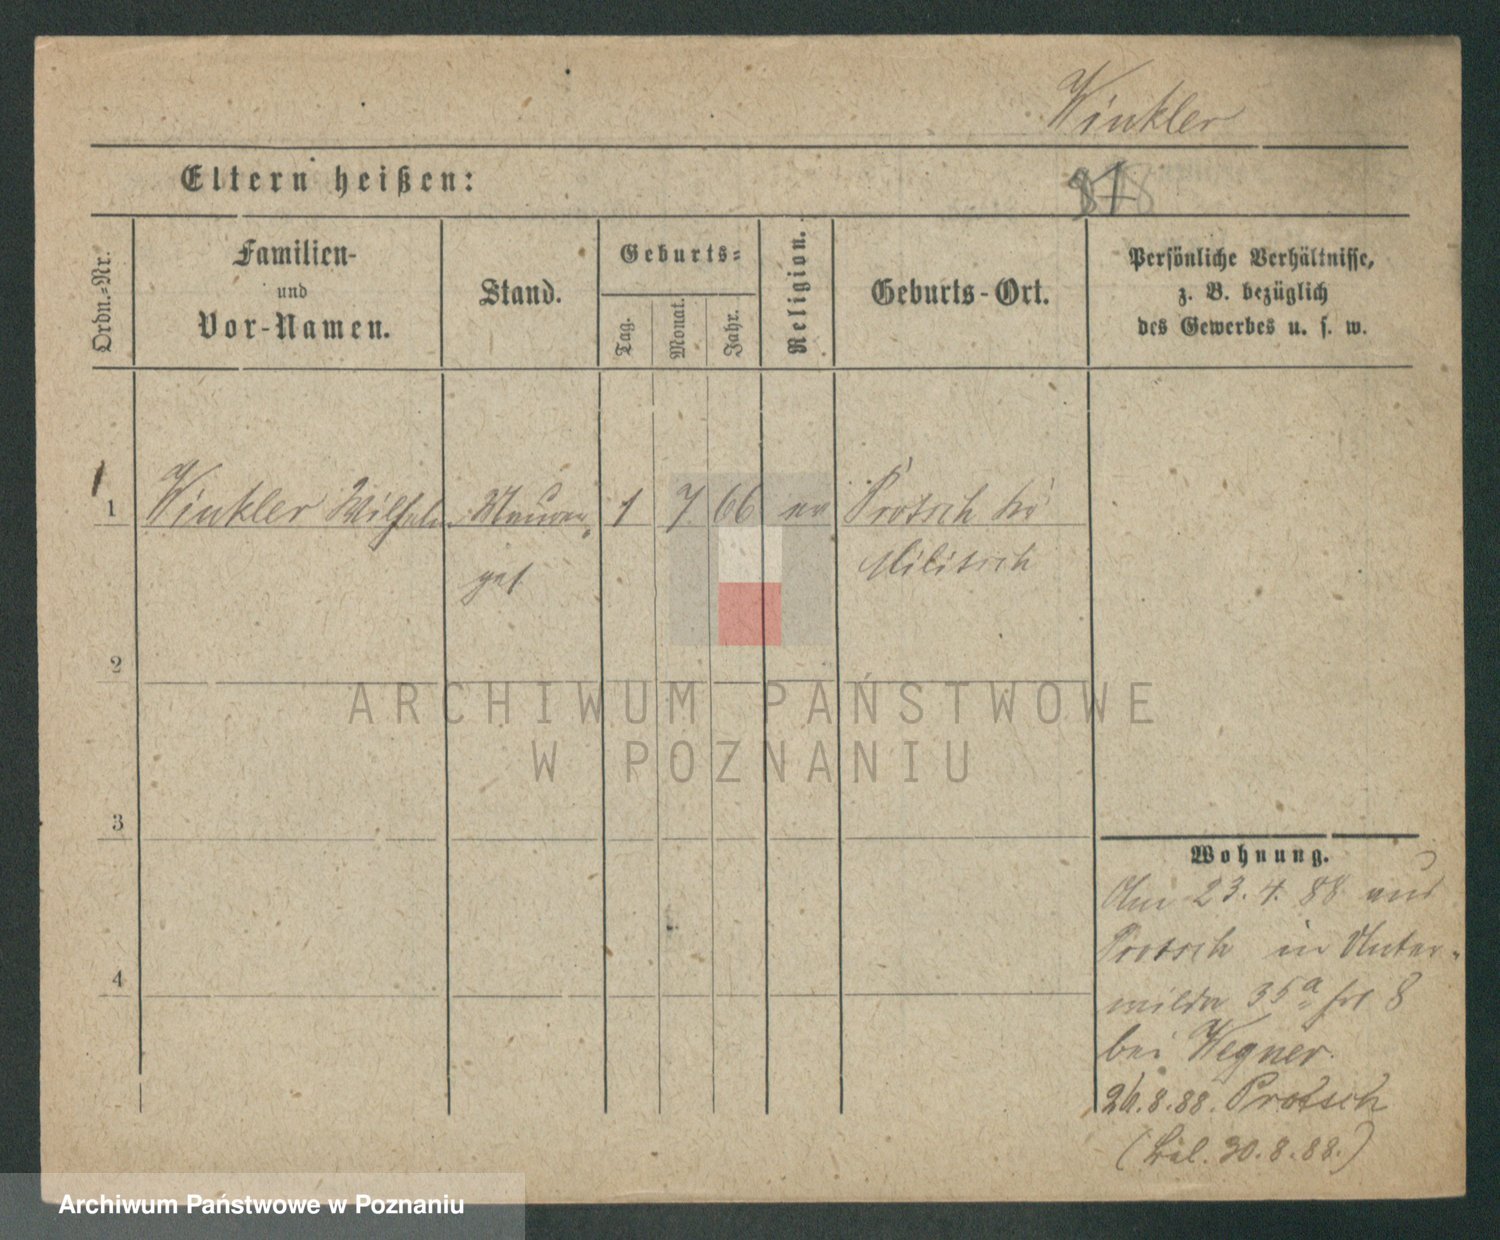 Winkler
Eltern heißen:
Ordn.-Nr.
Familien-
und
Vor-Namen.
Stand.
Geburts-
Tag.
Monat.
Jahr.
Religion.
Geburts-Ort.
Persönliche Verhältnisse,
z. B. bezüglich
des Gewerbes u. s. w.
1 Winkler Wilhelm Maurer 1 7 66 ev Protsch Kr
ges Militsch
2
ARCHIWUM PAŃSTWOWE
W POZNANIU
3
4
Wohnung.
Am 23.4.88 aus
Protsch in Unter-
wilda 35a 8
bei Wegner.
26.8.88. Protsch
30.8.88.)
Archiwum Państwowe w Poznaniu